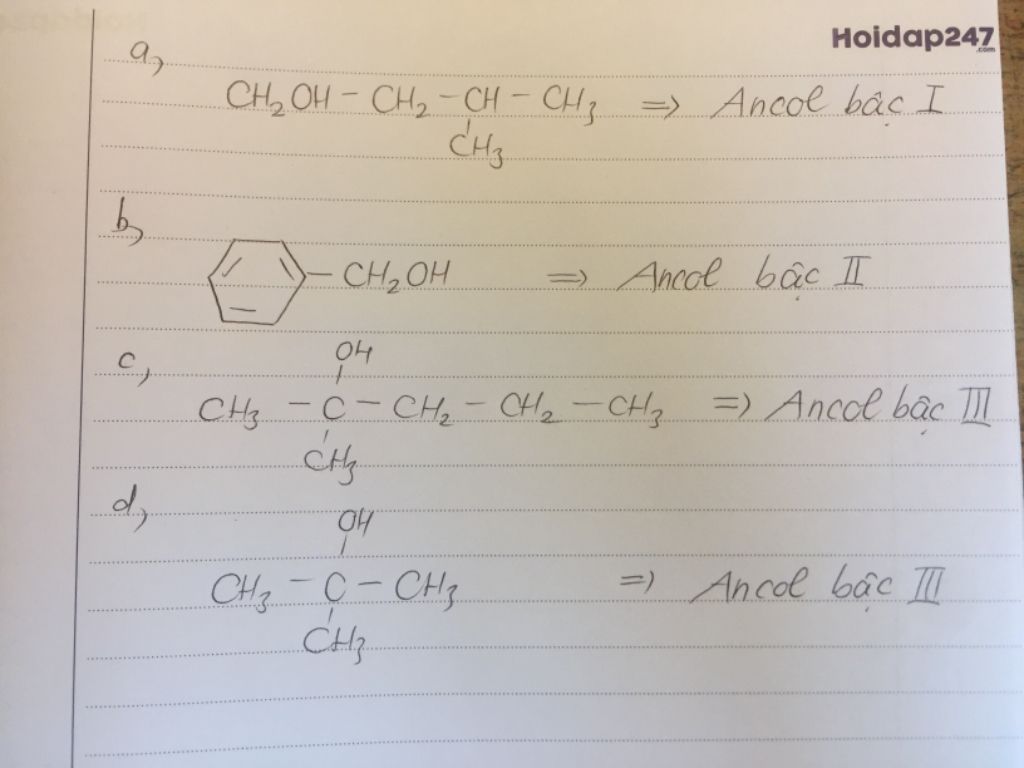 Hoidap247
.com
a,
CH₂OH – CH₂ – CH – CH₃ => Ancol bậc I
CH₃
b,
– CH₂OH => Ancol bậc II
OH
c,
CH₃ – C – CH₂ – CH₂ – CH₃ => Ancol bậc III
CH₃
d,
OH
CH₃ – C – CH₃ => Ancol bậc III
CH₃